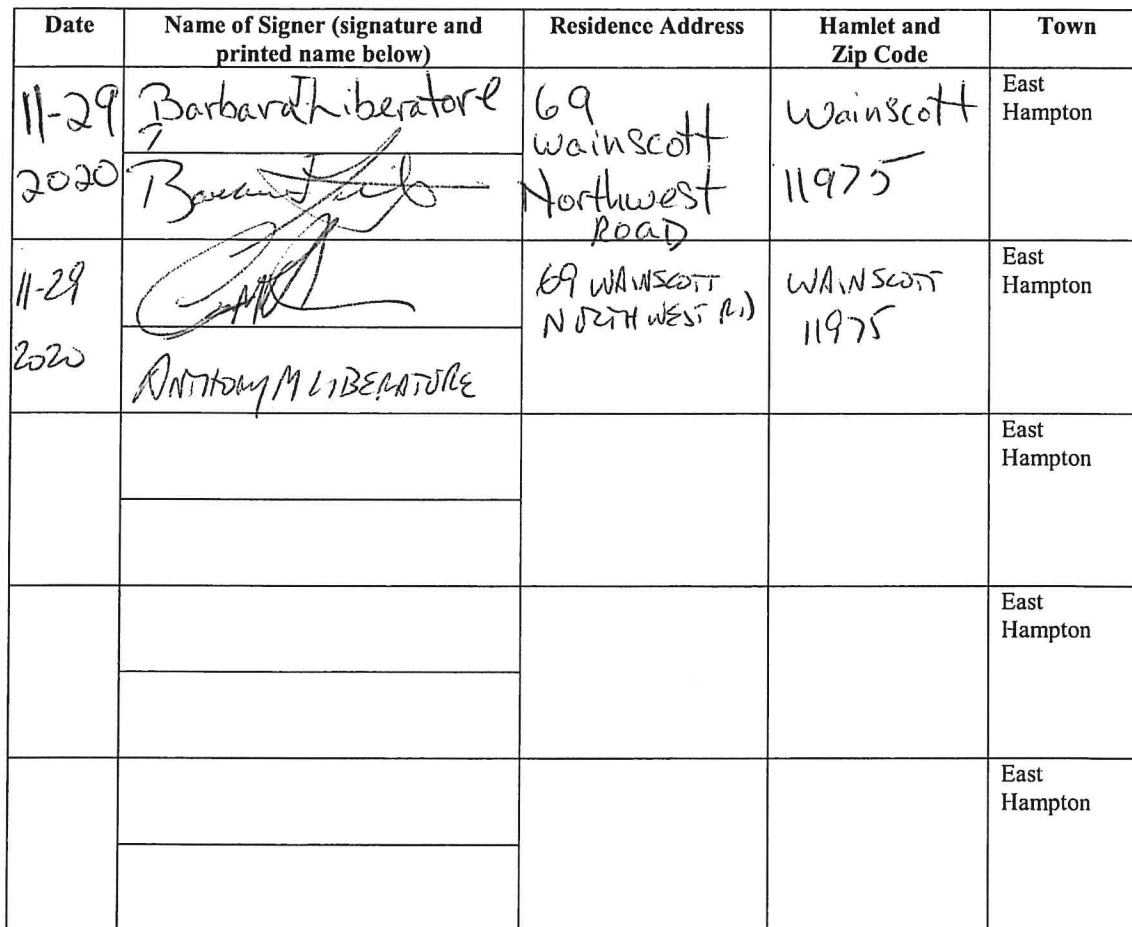 Date
Name of Signer (signature and
printed name below)
Residence Address
Hamlet and
Zip Code
Town
11-29
2020
Barbara J Liberatore
69
Wainscott
Northwest
ROAD
Wainscott
11975
East
Hampton
11-29
2020
ANTHONY M LIBERATORE
69 WAINSCOTT
NORTHWEST RD
WAINSCOTT
11975
East
Hampton
East
Hampton
East
Hampton
East
Hampton